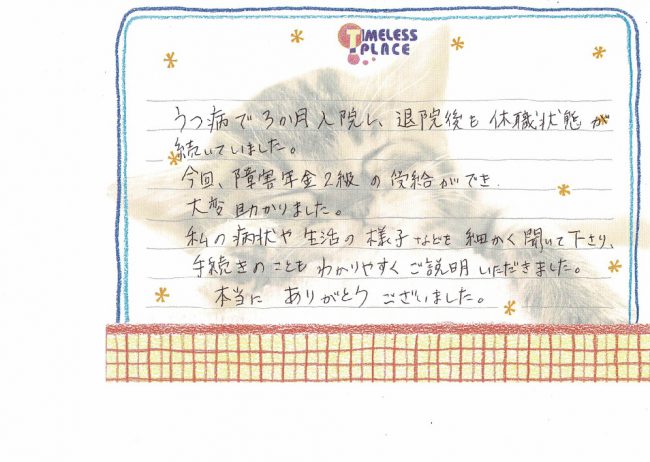 TIMELESS
PLACE
うつ病で3か月入院し、退院後も休職状態が
続いていました。
今回、障害年金2級の受給ができ
大変助かりました。
私の病状や生活の様子などを細かく聞いて下さり、
手続きのこともわかりやすくご説明いただきました。
本当にありがとうございました。